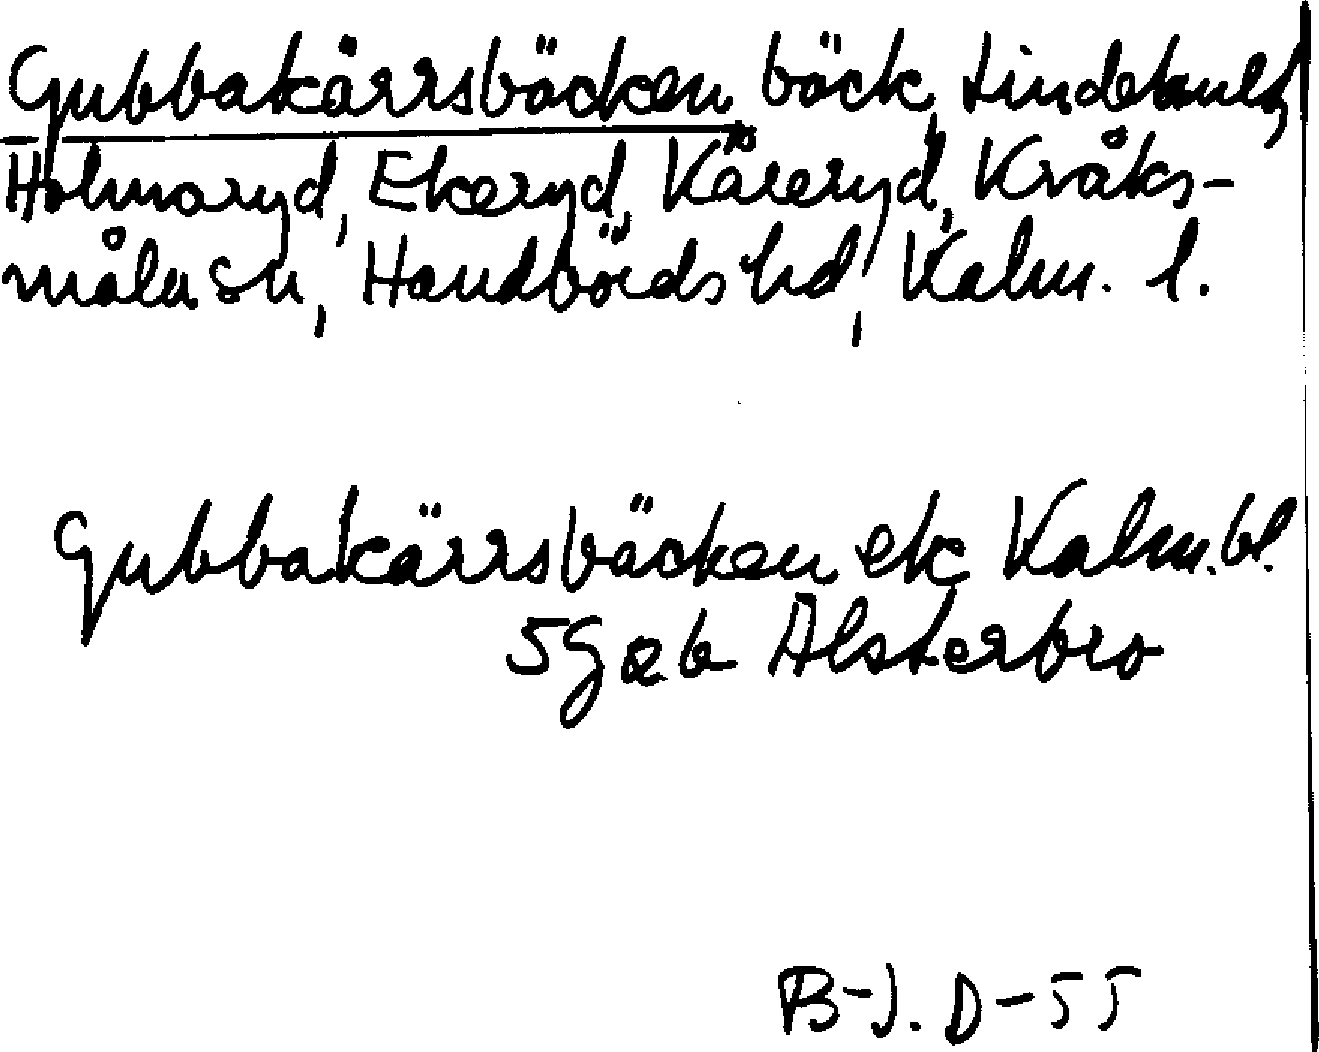 Gubbakärrsbäcken, bäck, Lindehult,
Holmaryd, Ekeryd, Kåreryd, Kråks-
måla sn, Handbörds hd, Kalm. l.
Gubbakärrsbäcken ek Kalm. bl.
5G a b Alsterbro
B-J. D-55